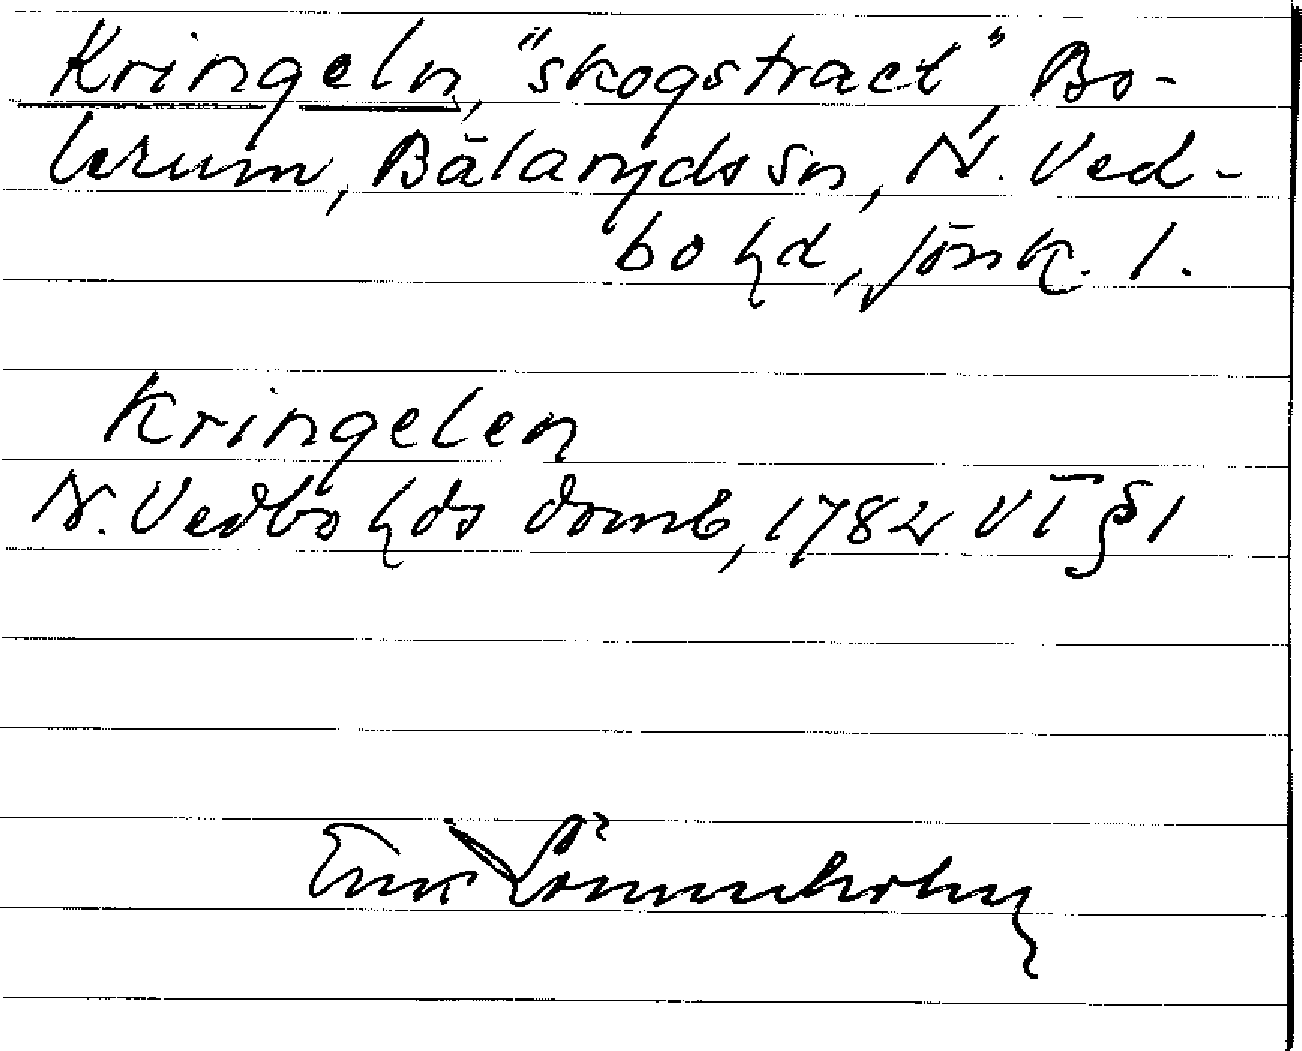 Kringeln, "skogstract", Bo-
lerum, Bälaryds sn, N. Ved-
bo hd, Jönk. l.
Kringelen
N. Vedbo hds domb, 1782 VT § 1
Erik Lönnerholm